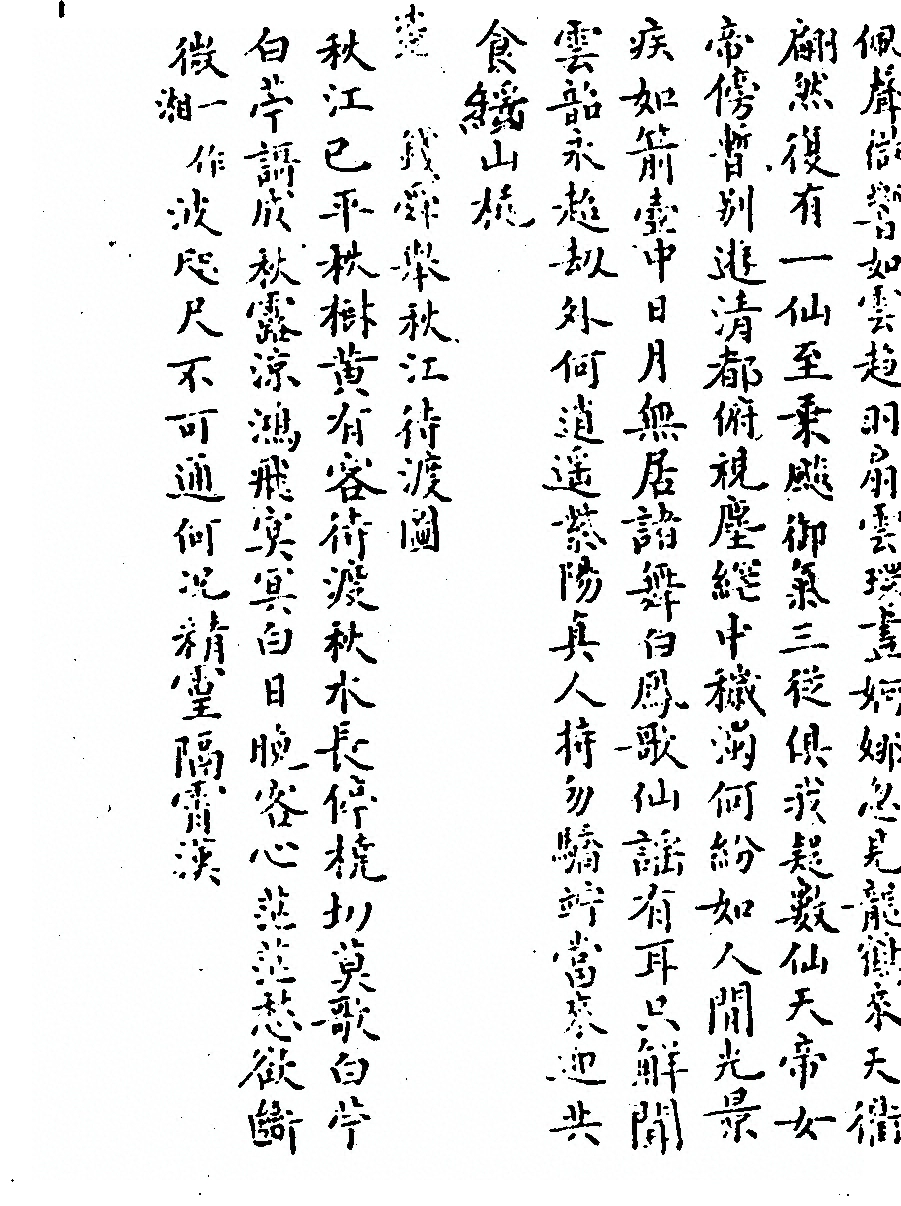 佩聲微響如雲趋羽扇雲璞畫婀娜忽見龍鶴来天衢
翩然復有一仙至乗飈御氣三從俱我疑數仙天帝女
帝傍暫别遊清都俯視塵緫中穢濁何紛如人間光景
疾如箭壺中日月無居諸舞白鳳歌仙謡有耳只解聞
雲韶永趂劫外何逍遥紫陽真人持勿驕竚當來迎共
食緱山桃
錢舜舉秋江待渡圖
秋江已平秋樹黄有客待渡秋水長停橈切莫歌白苧
白苧謌成秋露凉鴻飛㝠冥白日晚客心茫茫愁欲斷
微一作湘波咫尺不可通何况精靈隔霄漢